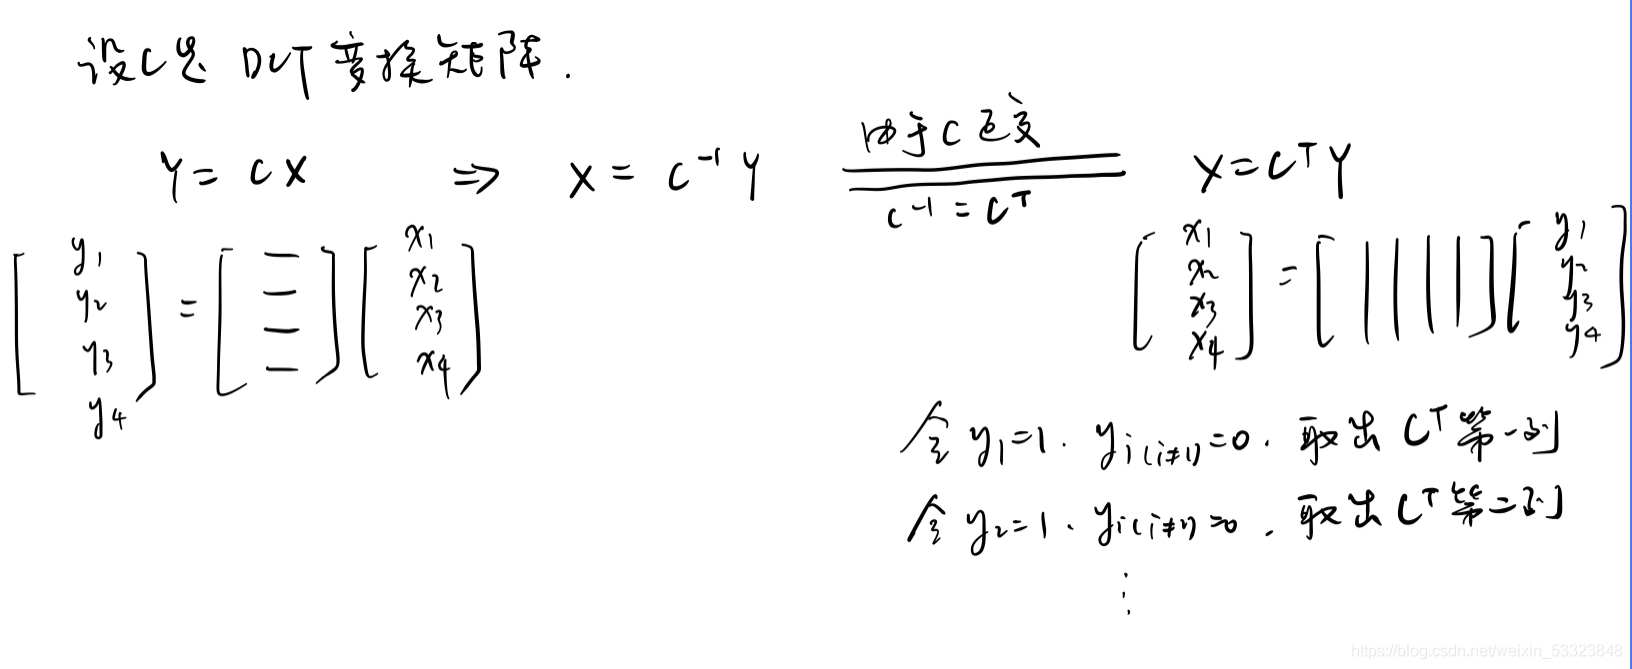 设C是 DCT变换矩阵.
Y = CX ⇒ X = C⁻¹Y 由于C正交 C⁻¹ = Cᵀ X = CᵀY
[y₁ y₂ y₃ y₄] = [— — — —] [x₁ x₂ x₃ x₄]
[x₁ x₂ x₃ x₄] = [| | | |] [y₁ y₂ y₃ y₄]
令 y₁=1. yᵢ(i≠1)=0. 取出 Cᵀ第一列
令 y₂=1. yᵢ(i≠1)=0. 取出 Cᵀ第二列
⋮
https://blog.csdn.net/weixin_53323848